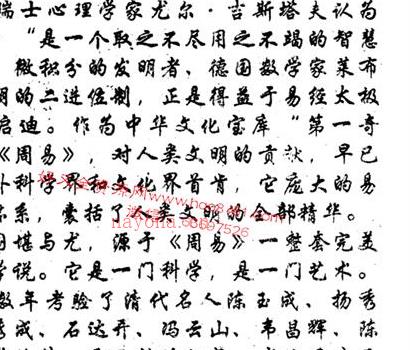 瑞士心理学家尤尔·吉斯塔夫认为
“是一个取之不尽用之不竭的智慧
微积分的发明者、德国数学家莱布
明的二进位制，正是得益于易经太极
启迪。作为中华文化宝库“第一奇
《周易》，对人类文明的贡献，早已
科学界和文化界首肯，它庞大的易
体系，囊括了人类文明的全部精华。
堪与尤，源于《周易》一整套完美
学说。它是一门科学，是一门艺术。
数年考验了清代名人陈玉成、杨秀
成、石达开、冯云山、韦昌辉、陈